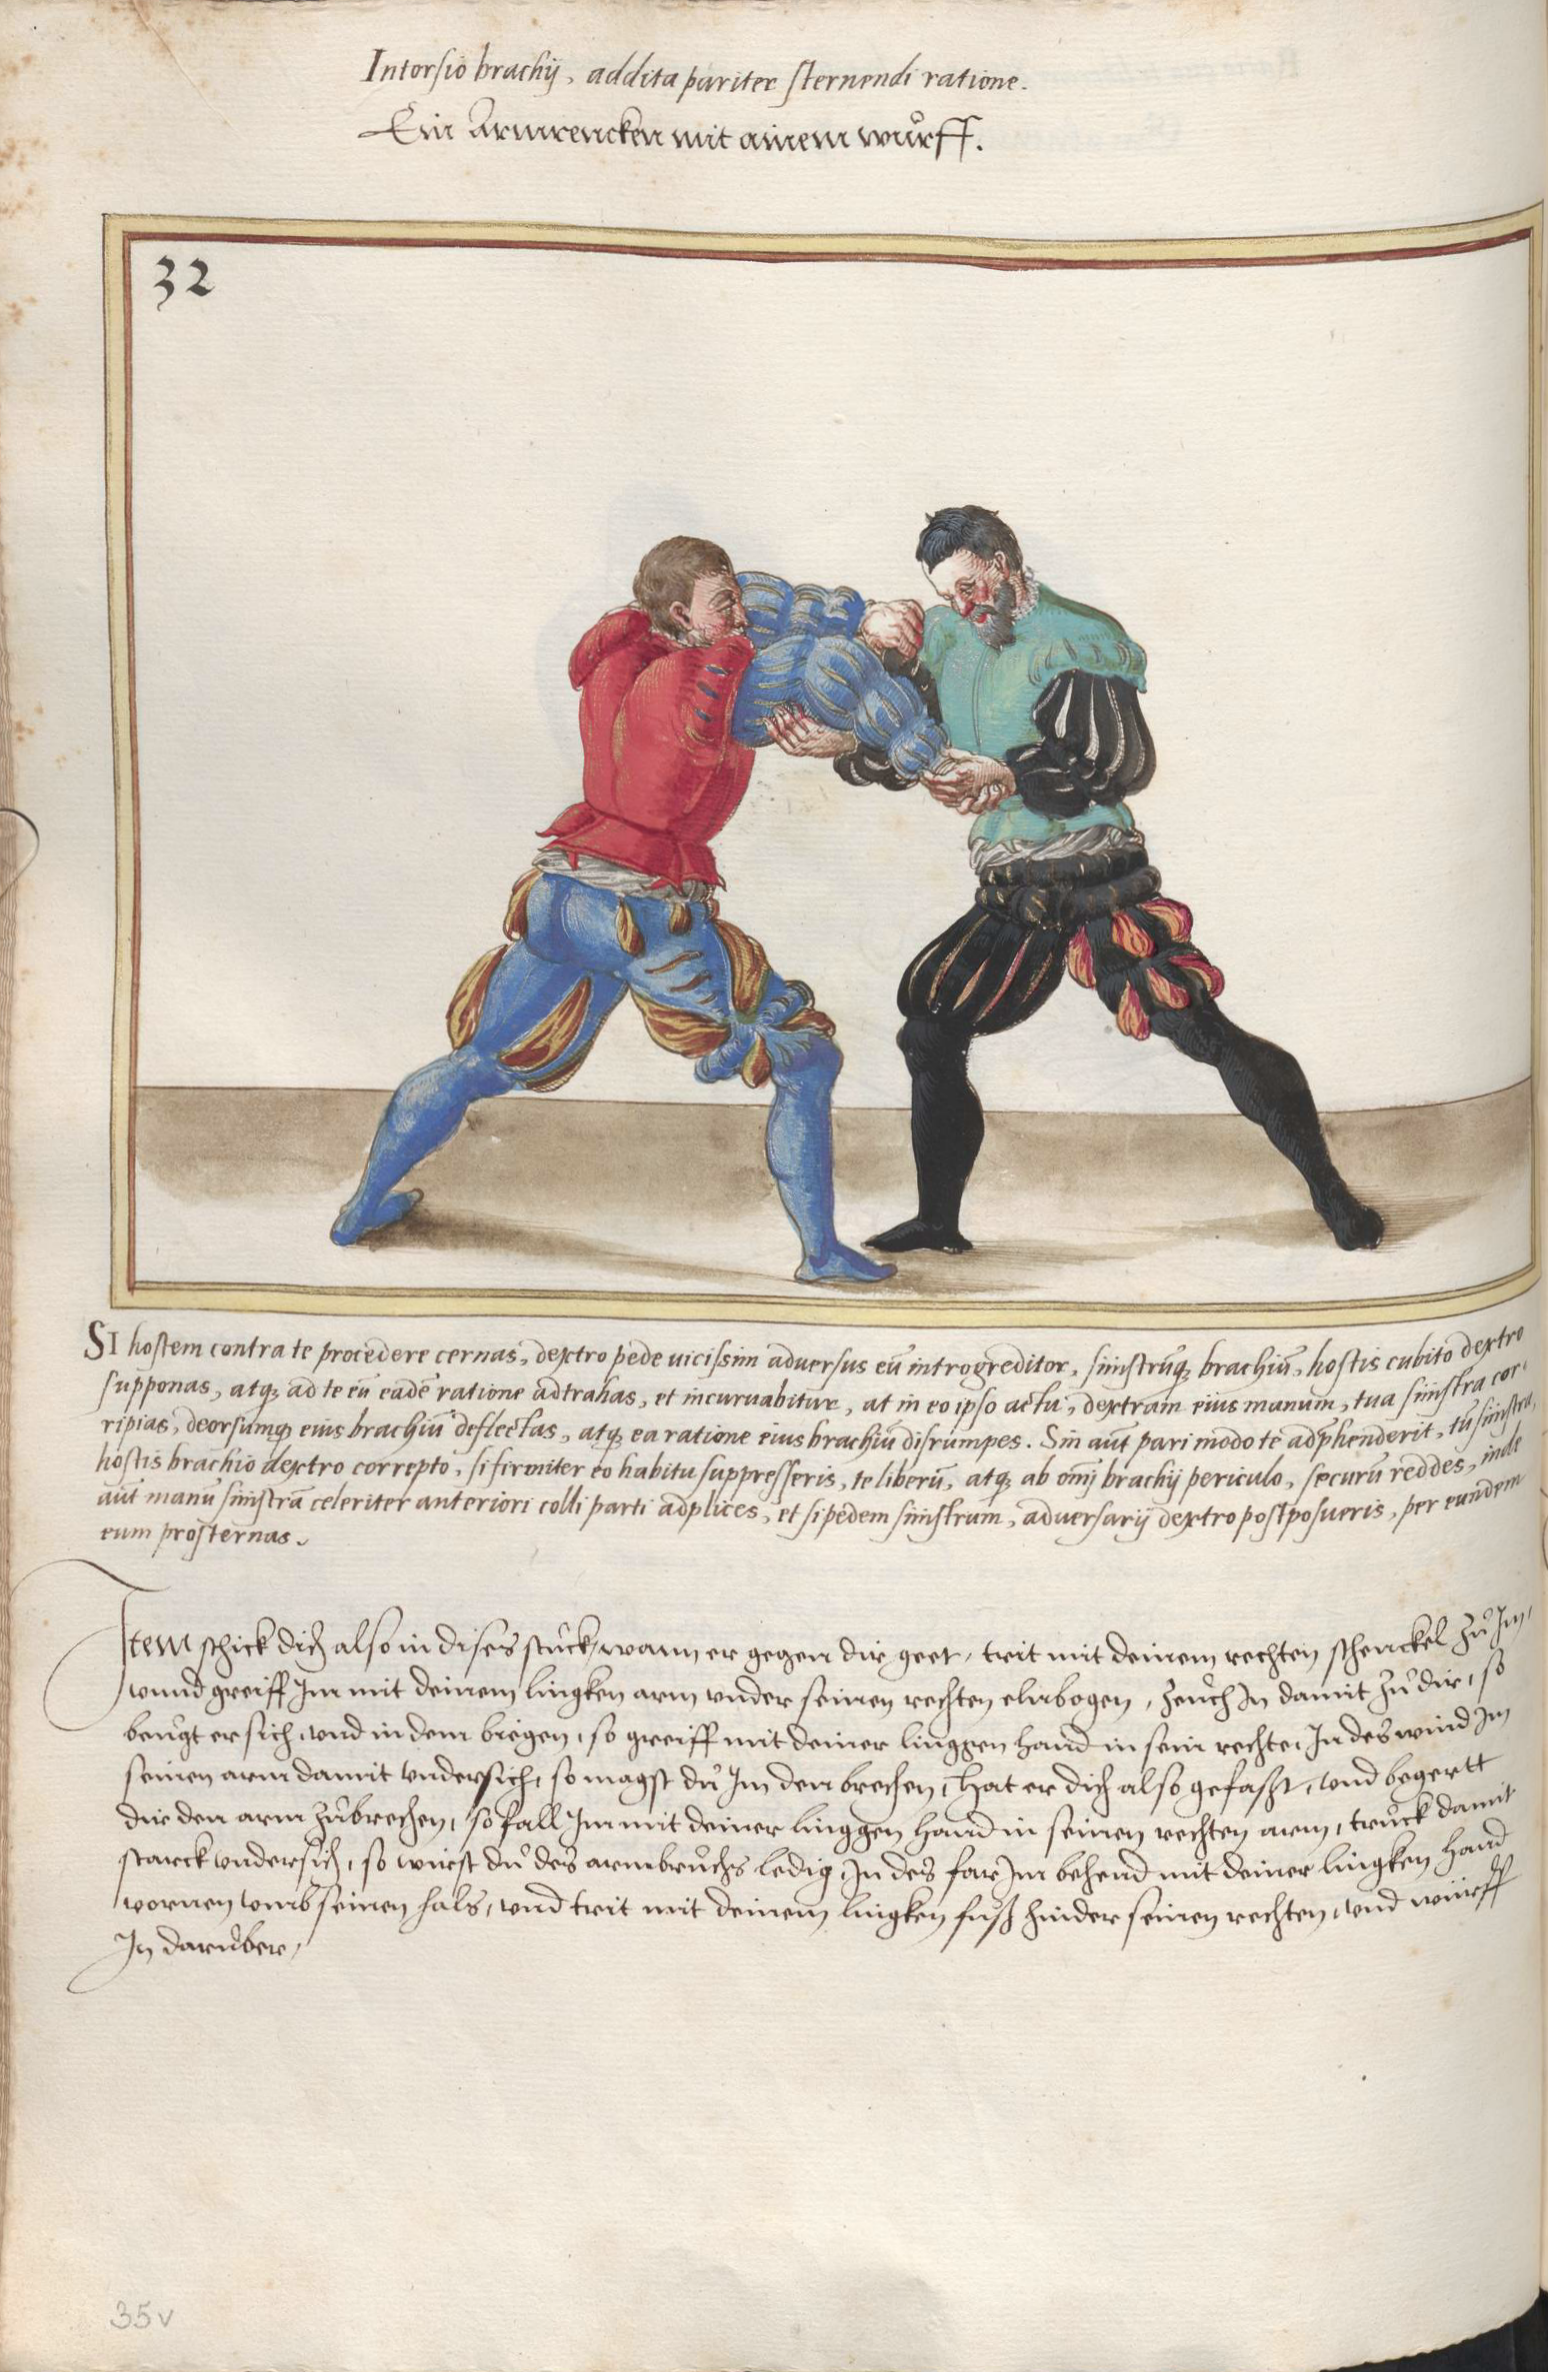 Intorsio brachij, addita pariter sternendi ratione.
Ein Armrencken mit ainem wůrff.
32
SI hostem contra te procedere cernas, dextro pede uicissim adversus eū introgreditor, sinistrūq₃ brachiū, hostis cubito dextro
supponas, atq₃ ad te eū eadē ratione adtrahas, et incuruabitur, at in eo ipso actu, dextram eius manum, tua sinistra cor-
ripias, deorsumq₃ eius brachiū deflectas, atq₃ ea ratione eius brachiū disrumpes. Sin aūt pari modo te adp̄henderit, tu sinistra,
hostis brachio dextro correpto, si firmiter eo habitu suppresseris, te liberū, atq₃ ab om̄j brachij periculo, securū reddes, inde
aūt manū sinistrā celeriter anteriori colli parti adplices, et si pedem sinistrum, adversarij dextro postposueris, per eundem
eum prosternas.
Item schick dich also in dises stuck, wann er gegen dir geet, trit mit deinem rechten schenckel zů Im,
unnd greiff Im mit deinem lingken arm vnder seinen rechten elnbogen, zeuch In damit zů dir, so
beugt er sich, vnd in dem biegen, so greiff mit deiner linggen hand in sein rechte, In des wind Im
seinen arm damit vndersich, so magst dů Im den brechen, Hat er dich also gefaßt, vnd begertt
dir den arm zůbrechen, so fall Im mit deiner linggen hand in seinen rechten arm, truck damit
starck vndersich, so wirst dů des armbruchs ledig, In des far Im behend mit deiner lingken hand
vornen vmb seinen hals, vnd trit mit deinem lingken fuß hinder seinen rechten, vnd würff
In darüber,
35v